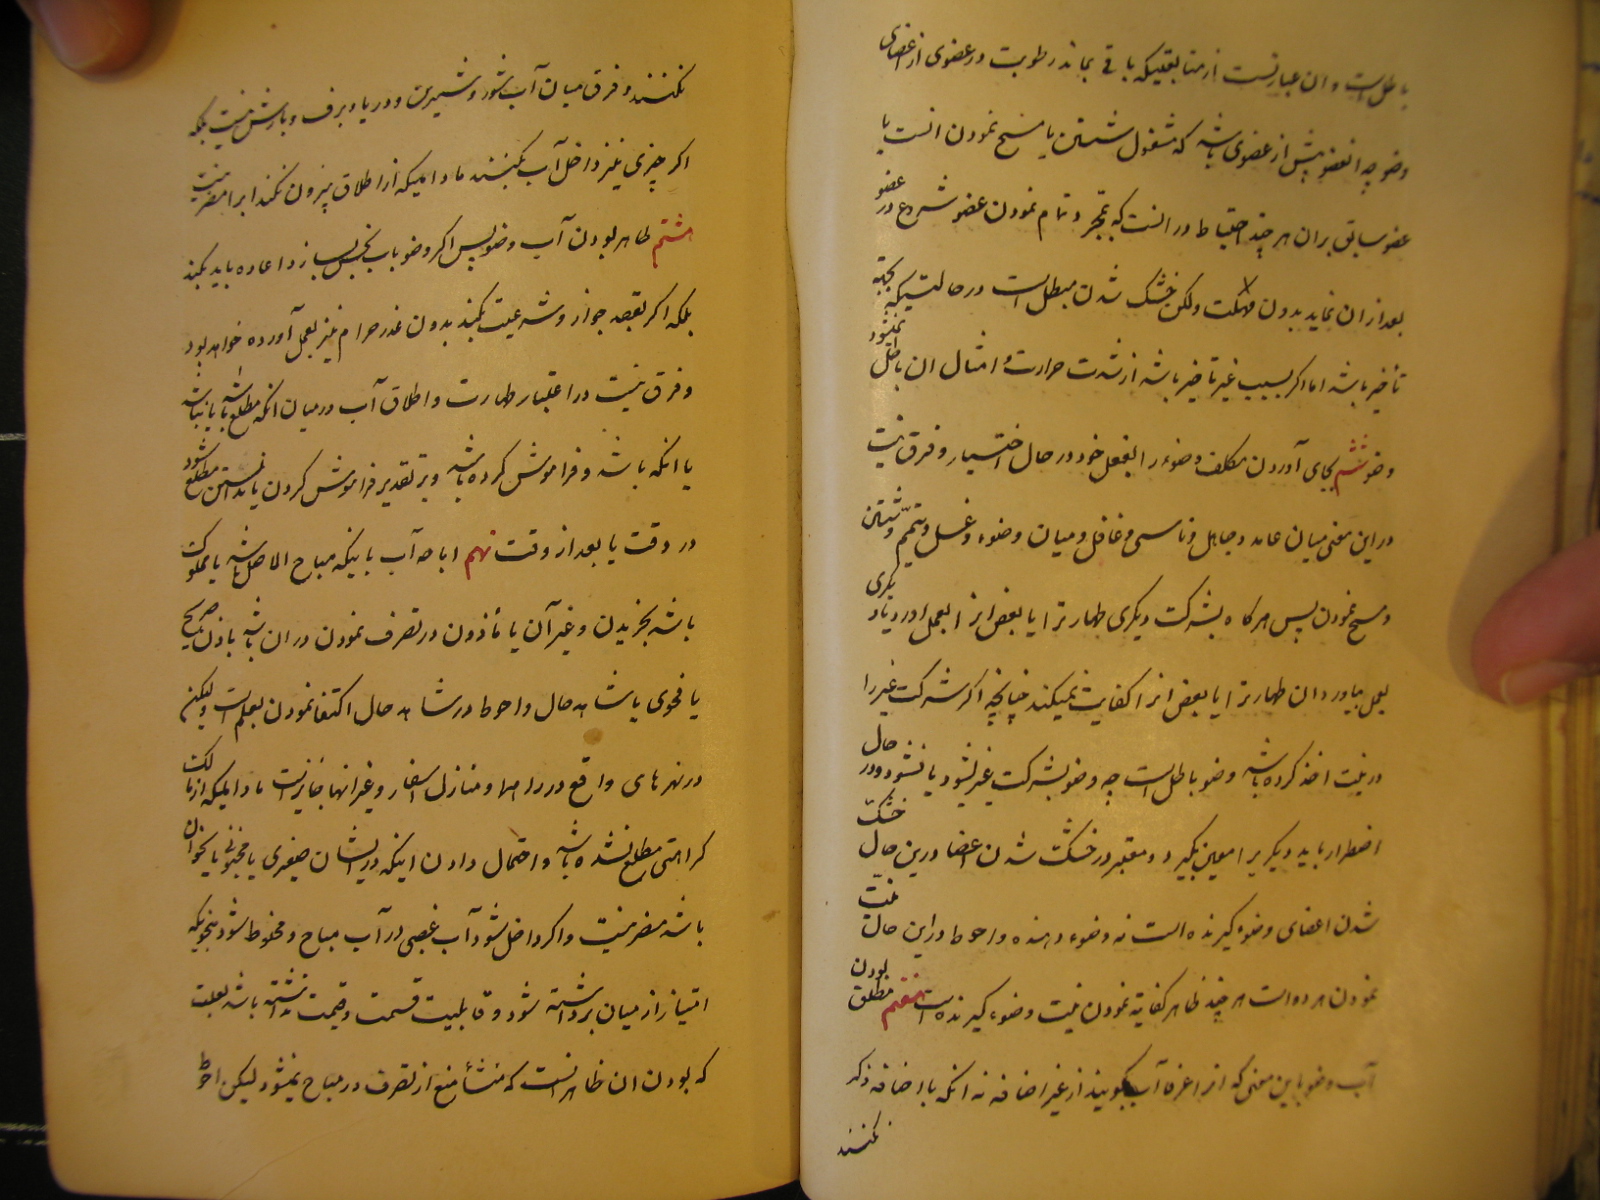 باطل است و ان عبارتست از متابعتیکه باقی بماند رطوبت در عضوی از اعضای
وضو چه انعضو پیش از عضوی باشد که مشغول شستن یا مسح نمودن انست یا
عضو سابق بران هر چند احتیاط در انست که بمجرد تمام نمودن عضو شروع در عضو
بعد از ان نماید بدون مهلت ولکن خشک شدن مبطل است در حالتیکه بجهة
تأخیر باشد اما اگر بسبب غیر تأخیر باشد از شدت حرارت و امثال ان باطل نمیشود
وضو ششم بجای آوردن مکلف وضوء را بنفعل خود در حال اختیار و فرق نیست
در این معنی میان عامد و جاهل و ناسی و غافل و میان وضوء و غسل و تیمّم و شستن
و مسح نمودن پس هرگاه بشرکت دیگری طهارترا یا بعض انرا بعمل اورد یا دیگری
بعمل بیاورد ان طهارترا یا بعض انرا کفایت نمیکند چنانچه اگر شرکت غیر را
در نیت اخذ کرده باشد وضو باطل است چه وضو بشرکت غیر بشود یا نشود و در حال
اضطرار باید دیگریرا معین بگیرد و معتبر در خشکت شدن اعضا درین حال خشکّ
شدن اعضای وضوء گیرنده است نه وضوء دهنده و احوط در این حال نیّت
نمودن هر دو است هر چند ظاهر کفایة نمودن نیت وضوء گیرنده است هفتم مطلق بودن
آب وضو باین معنی که انرا عرفا آب بگویند از غیر اضافه نه انکه با اضافه ذکر
نکنند
نکنند و فرق میان آب شور و شیرین و دریا و برف و بارش نیست بلکه
اگر چیزی نیز داخل آب بکنند مادامیکه از اطلاق بیرون نکند انرا مضر نیست
هشتم طاهر بودن آب وضو پس اگر وضو باب نجس بسازد اعاده باید بکند
بلکه اگر بقصد جواز و شرعیت بکند بدون عذر حرام نیز بعمل آورده خواهد بود
و فرق نیست در اعتبار طهارت و اطلاق آب در میان انکه مطلع باشد یا نباشد
یا انکه باشد و فراموش کرده باشد و بر تقدیر فراموش کردن یا ندانستن مطلع شود
در وقت یا بعد از وقت نهم اباحه آب باینکه مباح الاصل باشد یا مملوکت
باشد بخریدن و غیر آن یا مأذون در تصرف نمودن در ان باشد باذن صریح
یا فحوی یا شاهد حال و احوط در شاهد حال اکتفا نمودن بعلم است ولیکن
در نهرهای واقع در راهها و منازل اسفار و غیر انها جایز است مادامیکه از مالکت
کراهتی مطلع نشده باشد و احتمال دادن اینکه در ایشان صغیری یا مجنونی یا نحو ان
باشد مضر نیست و اگر داخل شود آب غصبی در آب مباح و مخلوط شود بنحویکه
امتیاز از میان برداشته شود و قابلیت قسمت و قیمت نداشته باشد بعلت
کم بودن ان ظاهر انست که منشأ منع از تصرف در مباح نمیشود لیکن احوط